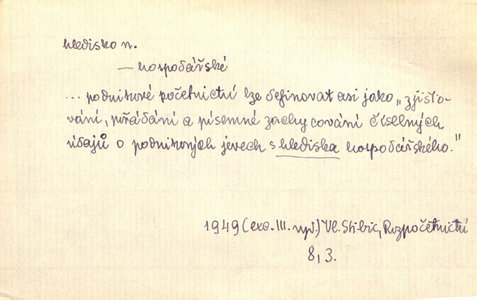 hledisko n.
— hospodářské
... podnikové početnictví lze definovat asi jako „zjišťo-
vání, pořádání a písemné zachycování číselných
údajů o podnikových jevech s hlediska hospodářského."
1949 (exc. III. vyd.) Vl. Stibic, Rozpočetnictví
8, 3.